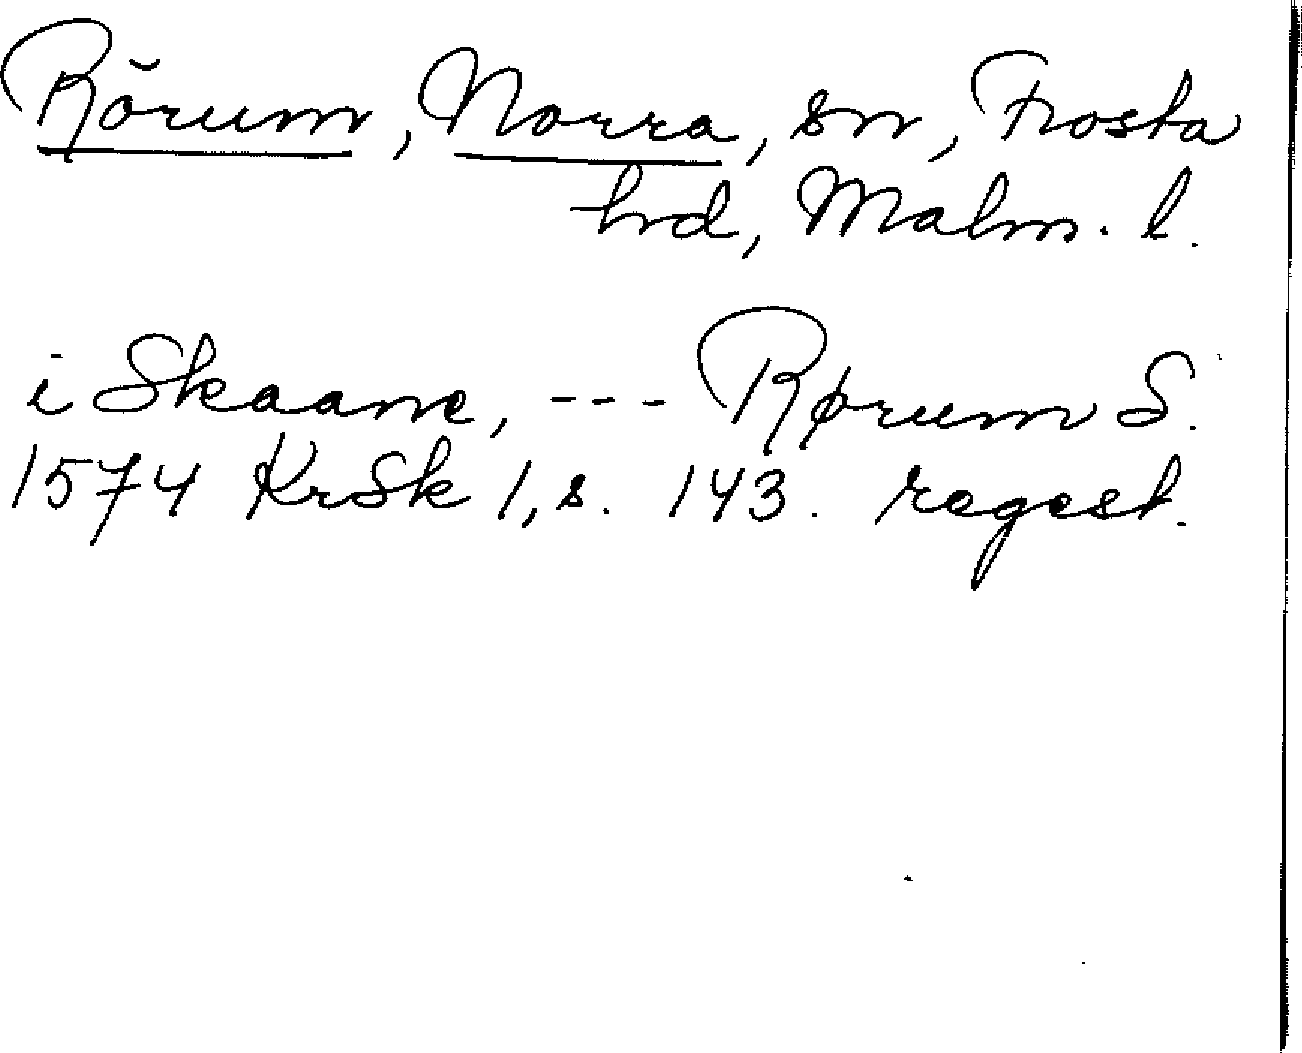 Rörum, Norra, sn, Frosta
hrd, Malm. l.
i Skaane, --- Rørum S.
1574 KrSk 1, s. 143. regest.